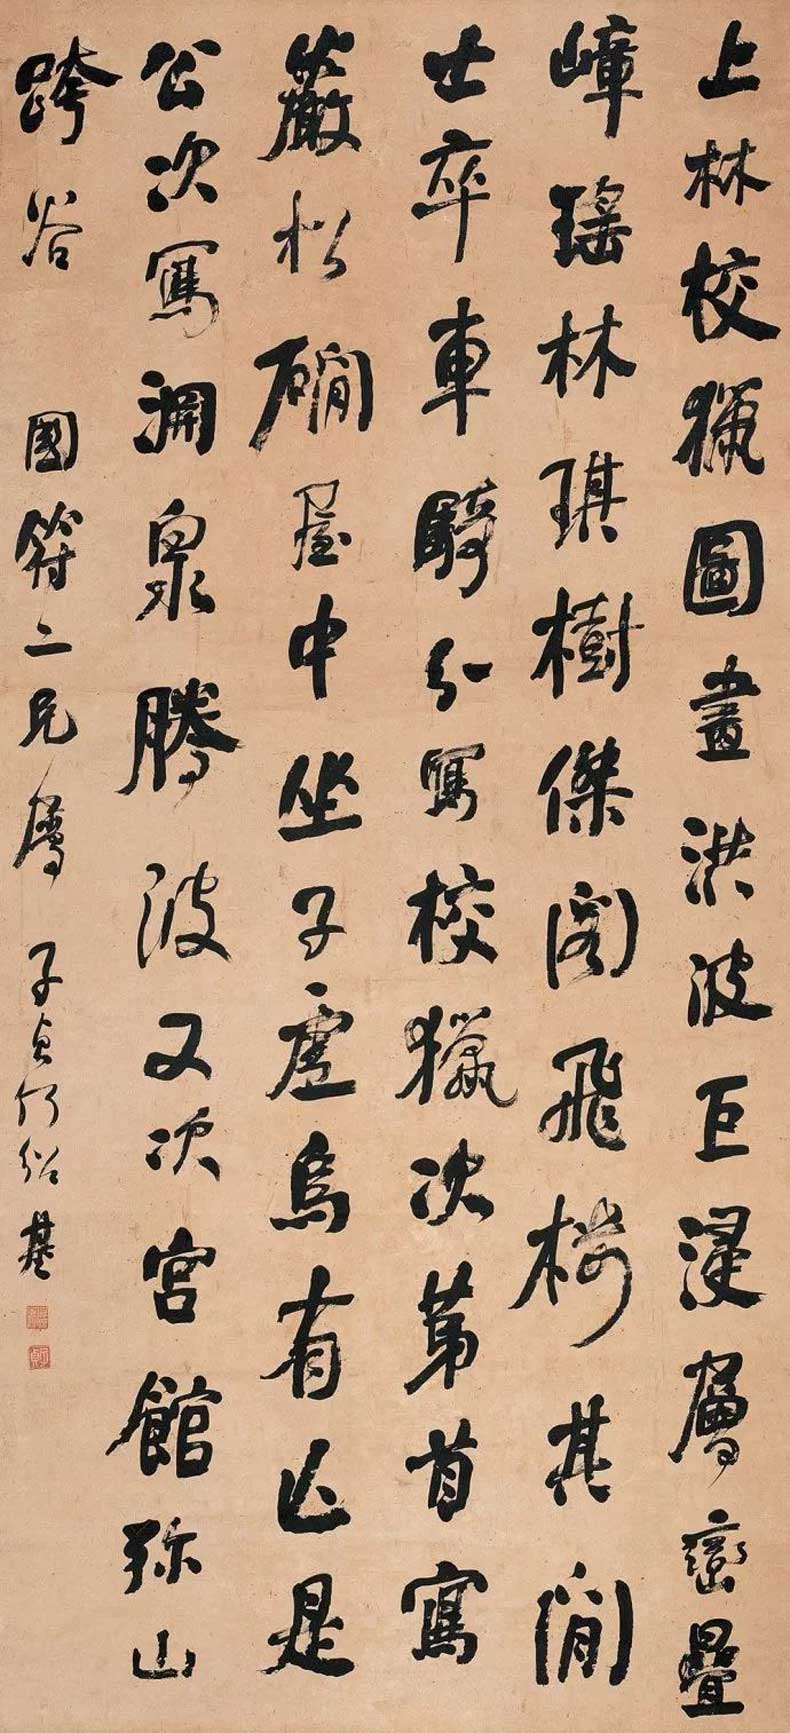 上林校獵圖畫洪波巨浸層巒疊
嶂瑤林琪樹傑閣飛樓其閒
士卒車騎分寫校獵次第首寫
巖松磵屋中坐子虛烏有亡是
公次寫淵泉騰波又次宮館弥山
跨谷 國符二兄屬 子貞何紹基